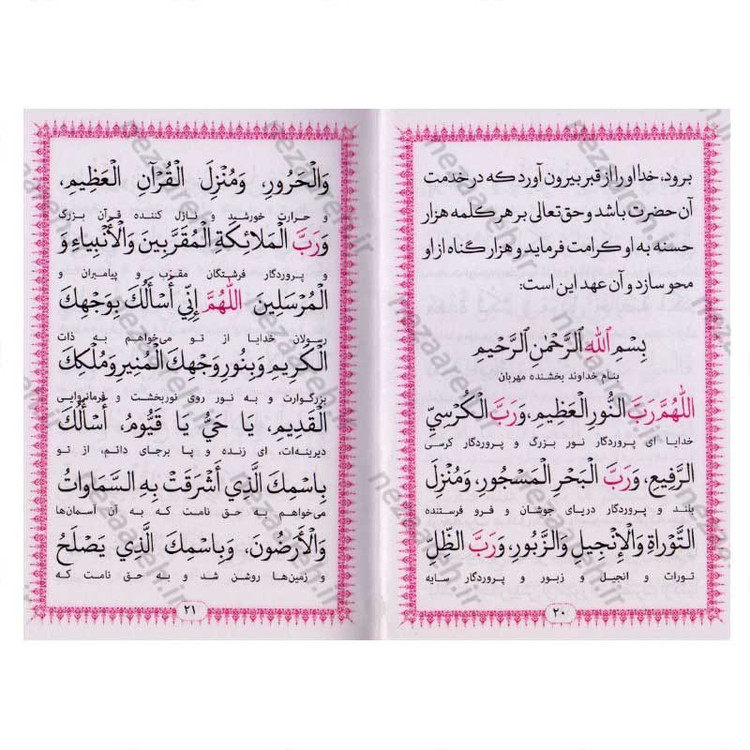 برود، خدا او را از قبر بیرون آورد که در خدمت
آن حضرت باشد و حق‌تعالی بر هر کلمه هزار
حسنه به او کرامت فرماید و هزار گناه از او
محو سازد و آن عهد این است:
بِسْمِ اللهِ الرَّحْمٰنِ الرَّحْیمِ
بنام خداوند بخشنده مهربان
اَللّٰهُمَّ رَبَّ النُّورِ الْعَظِیمِ، وَ رَبَّ الْكُرْسِيِّ
خدایا ای پروردگار نور بزرگ و پروردگار کرسی
الرَّفِیعِ، وَ رَبَّ الْبَحْرِ الْمَسْجُورِ، وَ مُنْزِلَ
بلند و پروردگار دریای جوشان و فرو فرستنده
التَّوْرَاةِ وَالْإِنْجِیلِ وَالزَّبُورِ، وَ رَبَّ الظِّلِّ
تورات و انجیل و زبور و پروردگار سایه
۲۰
وَالْحَرُورِ، وَ مُنْزِلَ الْقُرْآنِ الْعَظِیمِ،
و حرارت خورشید و نازل کننده قرآن بزرگ
وَ رَبَّ الْمَلَائِكَةِ الْمُقَرَّبِینَ وَالْأَنْبِیَاءِ وَ
و پروردگار فرشتگان مقرب و پیامبران و
الْمُرْسَلِینَ اَللّٰهُمَّ إِنِّي أَسْأَلُكَ بِوَجْهِكَ
رسولان خدایا از تو می‌خواهم به ذات
الْكَرِیمِ وَ بِنُورِ وَجْهِكَ الْمُنِیرِ وَ مُلْكِكَ
بزرگوارت و به نور روی نوربخشت و فرمانروایی
الْقَدِیمِ، یَا حَيُّ یَا قَیُّومُ، أَسْأَلُكَ
دیرینه‌ات، ای زنده و پا برجای دائم، از تو
بِاسْمِكَ الَّذِي أَشْرَقَتْ بِهِ السَّمَاوَاتُ
می‌خواهم به حق نامت که به آن آسمان‌ها
وَالْأَرَضُونَ، وَ بِاسْمِكَ الَّذِي یَصْلَحُ
و زمین‌ها روشن شد و به حق نامت که
۲۱
nezaareh.ir